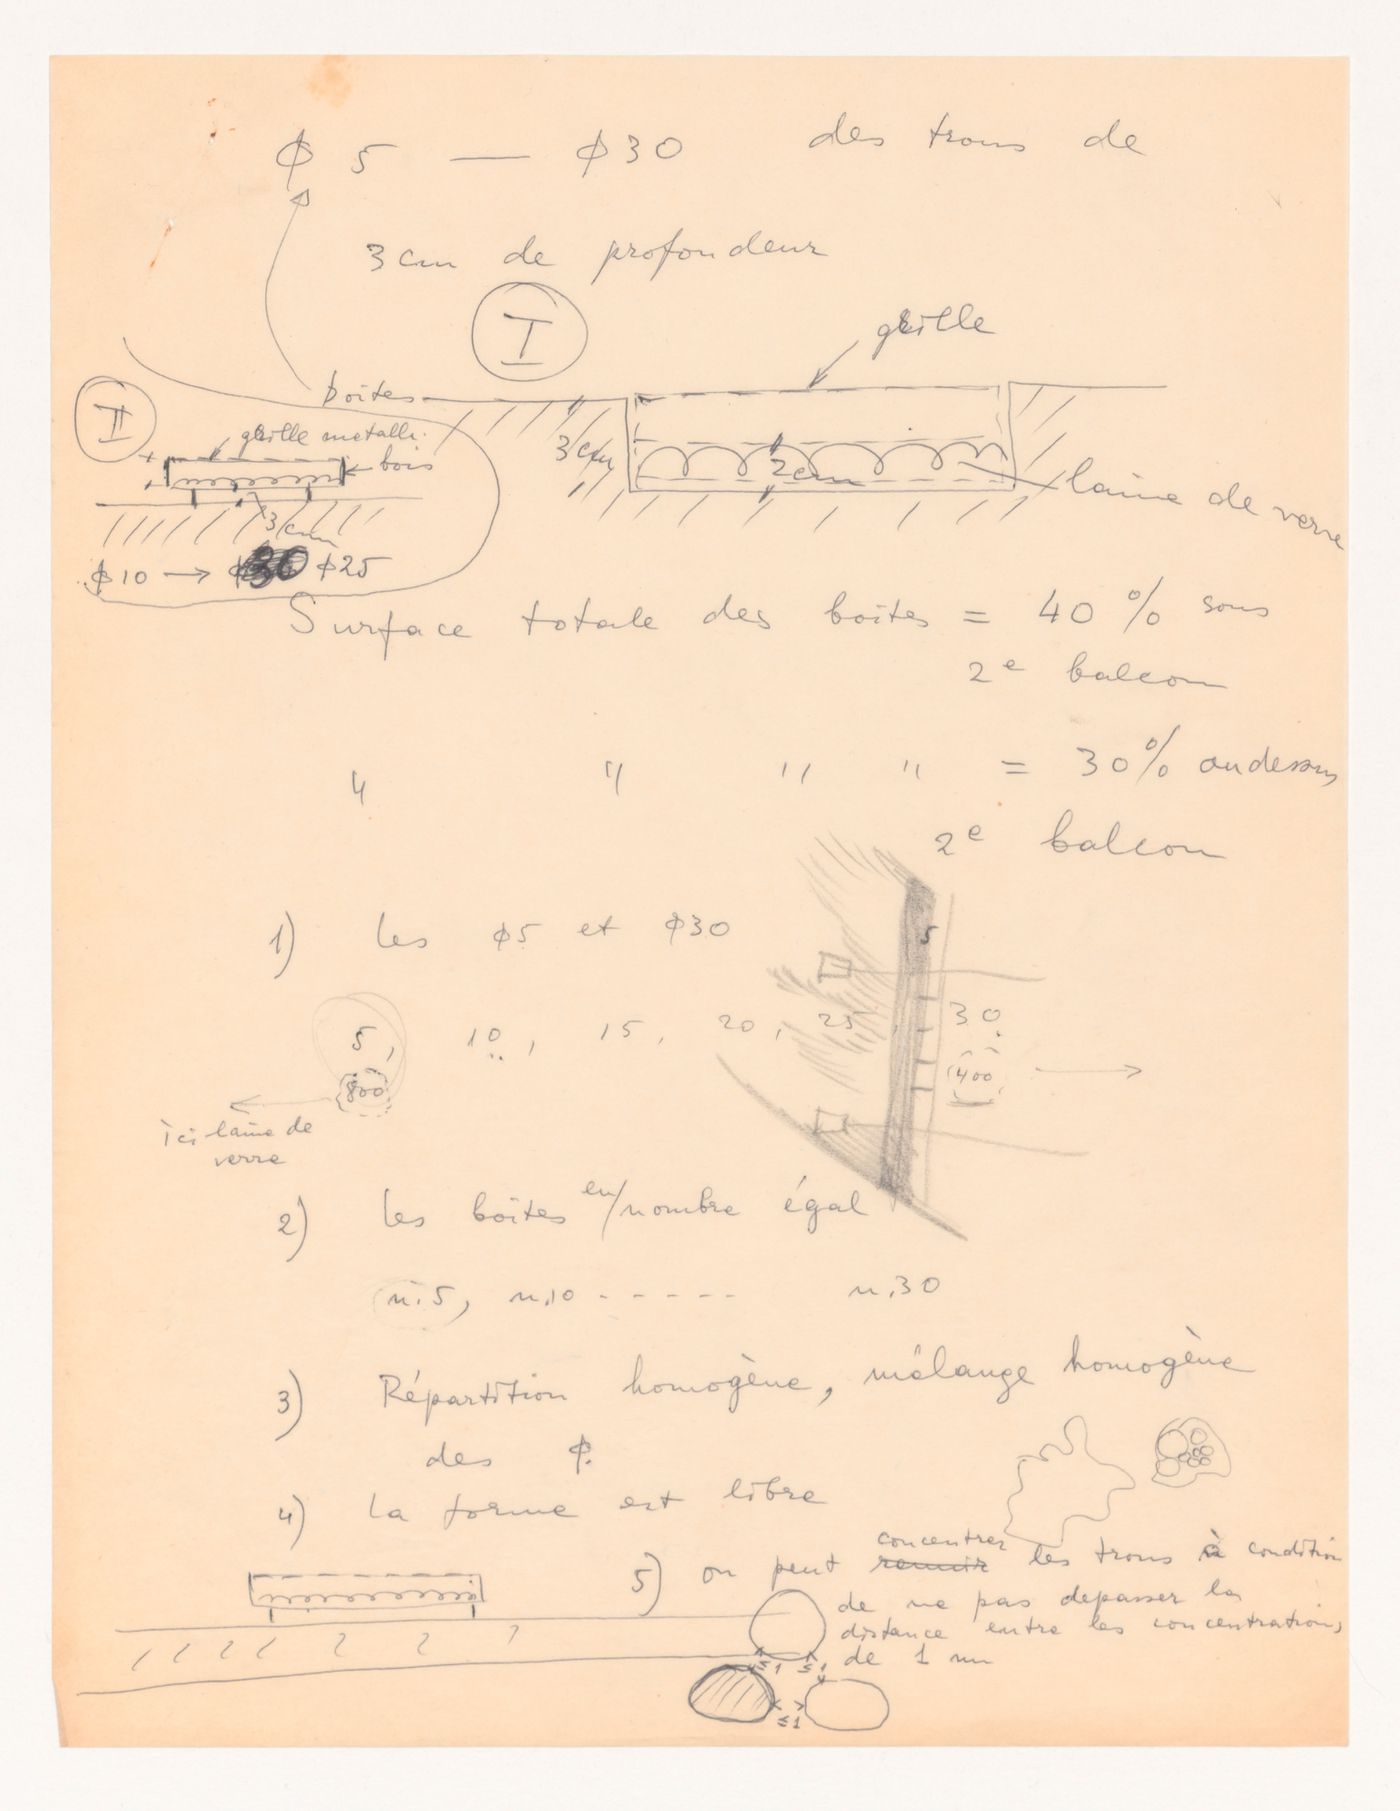 ϕ 5 — ϕ30 des trous de
3 cm de profondeur
I
grille
boîtes
II
grille metalli.
bois
3 cm
2 cm
laine de verre
3 cm
ϕ10 → ϕ25
Surface totale des boîtes = 40 % sous
2e balcon
" " " " = 30% au dessus
2e balcon
1) les ϕ5 et ϕ30
5
5, 10, 15, 20, 25, 30
800
400
ici laine de
verre
2) les boîtes en nombre égal
n.5, n.10 - - - - - n.30
3) Répartition homogène, mélange homogène
des ϕ.
4) La forme est libre
5) on peut réunir concentrer les trous à condition
de ne pas depasser la
distance entre les concentrations
de 1 m
≤1 ≤1
≤1